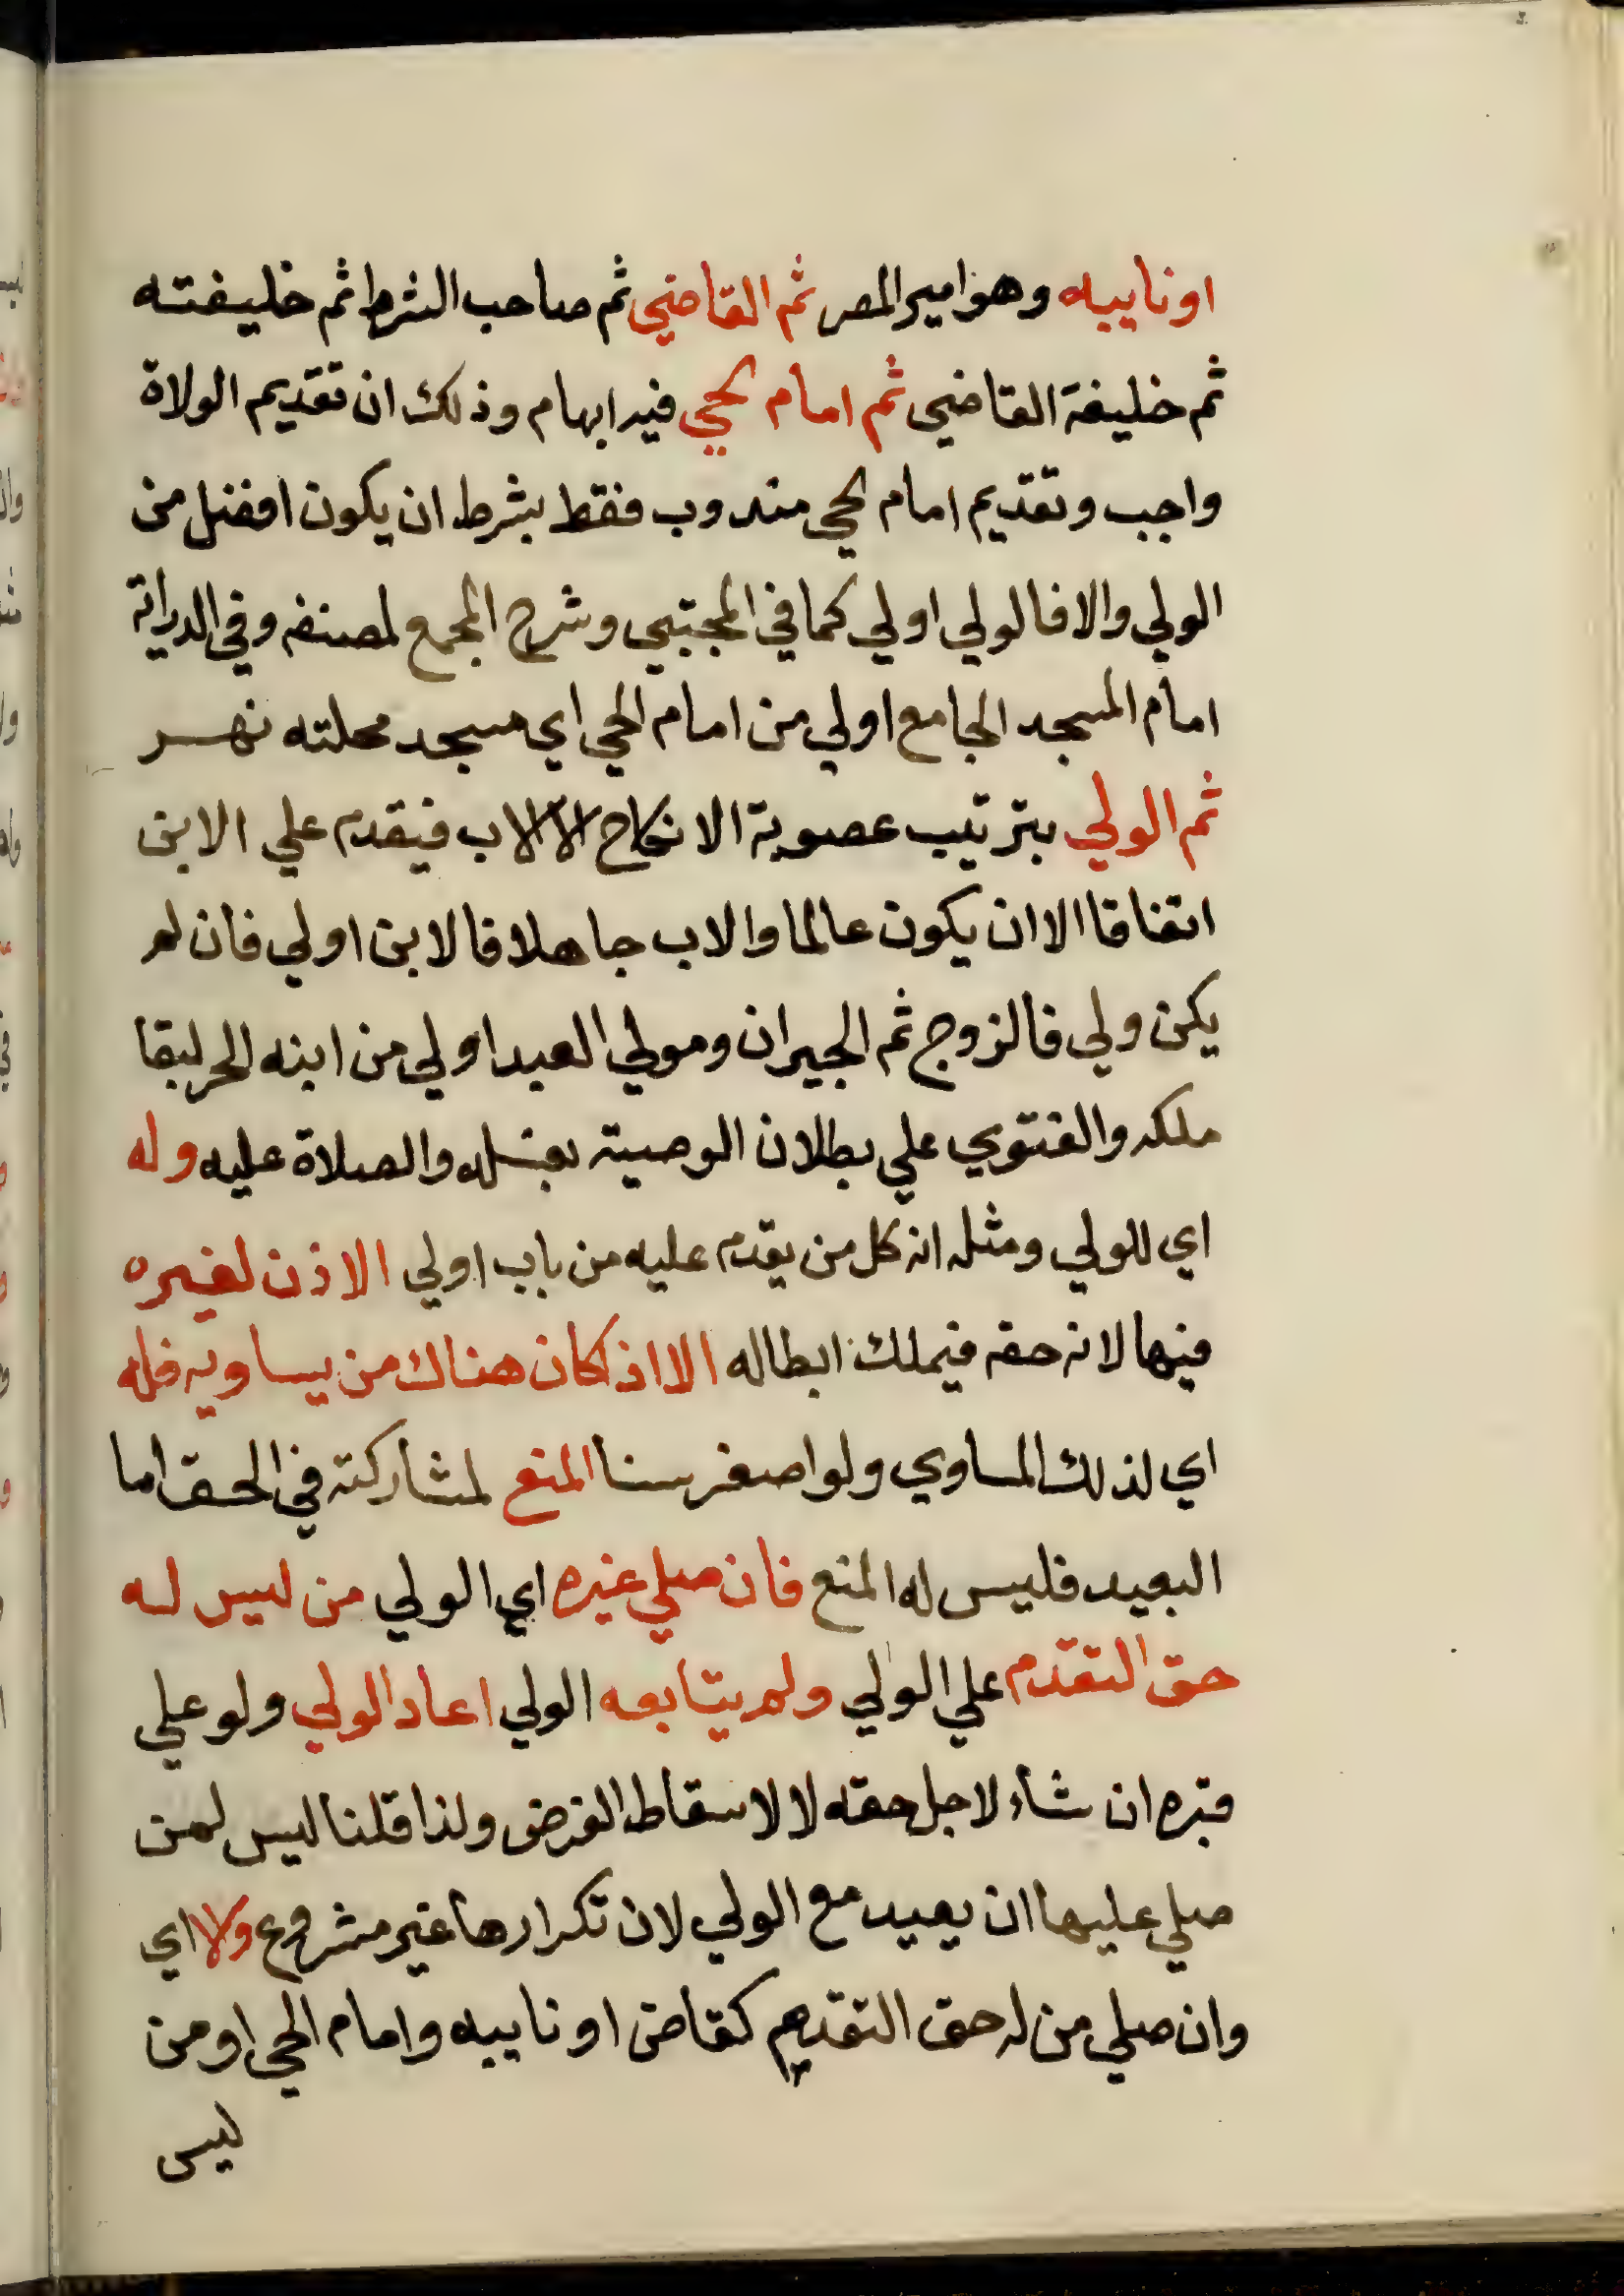 اونايبه وهوامير المصر ثم القاضي ثم صاحب الشرط ثم خليفته
ثم خليفة القاضي ثم امام الحي فيه ابهام وذلك ان تقديم الولاة
واجب وتقديم امام الحي مندوب فقط بشرط ان يكون افضل من
الولي والا فالولي اولي كما في المجتبي وشرح المجمع لمصنفه وفي الدراية
امام المسجد الجامع اولي من امام الحي اي مسجد محلته نهر
ثم الولي بترتيب عصوبة الانكاح الا الاب فيقدم علي الابن
اتفاقا الا ان يكون عالما والاب جاهلا فالابن اولي فان لم
يكن ولي فالزوج ثم الجيران ومولي العبد اولي من ابنه الحر لبقا
ملكه والفتوي علي بطلان الوصية بغسله والصلاة عليه وله
اي للولي ومثله انه كل من يقدم عليه من باب اولي الاذن لغيره
فيها لانه حقه فيملك ابطاله الا اذا كان هناك من يساويه فله
اي لذلك المساوي ولو اصغر سنا المنع لمشاركته في الحق اما
البعيد فليس له المنع فان صلي غيره اي الولي من ليس له
حق التقدم علي الولي ولم يتابعه الولي اعاد الولي ولو علي
قبره ان شاء لاجل حقه لا لاسقاط الفرض ولذا قلنا ليس لمن
صلي عليها ان يعيد مع الولي لان تكرارها غير مشروع ولا اي
وان صلي من له حق التقديم كقاض او نايبه وامام الحي او من
ليس